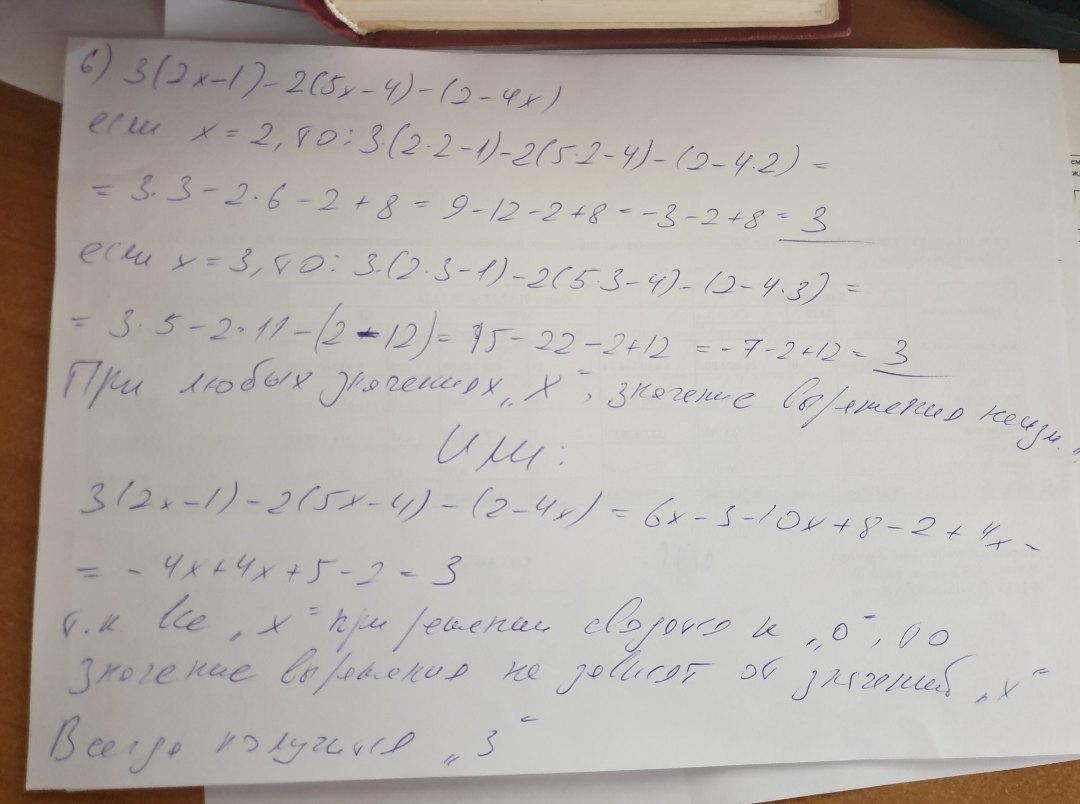 6) 3(2x-1)-2(5x-4)-(2-4x)
если x=2, то: 3·(2·2-1)-2(5·2-4)-(2-4·2) =
= 3·3-2·6-2+8 = 9-12-2+8 = -3-2+8 = 3
если x=3, то: 3·(2·3-1)-2(5·3-4)-(2-4·3) =
= 3·5-2·11-(2-12) = 15-22-2+12 = -7-2+12 = 3
При любых значениях „x“, значение выражения неизм.
Или:
3(2x-1)-2(5x-4)-(2-4x) = 6x-3-10x+8-2+4x=
= -4x+4x+5-2=3
т.к все „x“ при решении сводятся к „0“, то
значение выражения не зависят от значений „x“
Всегда получится „3“